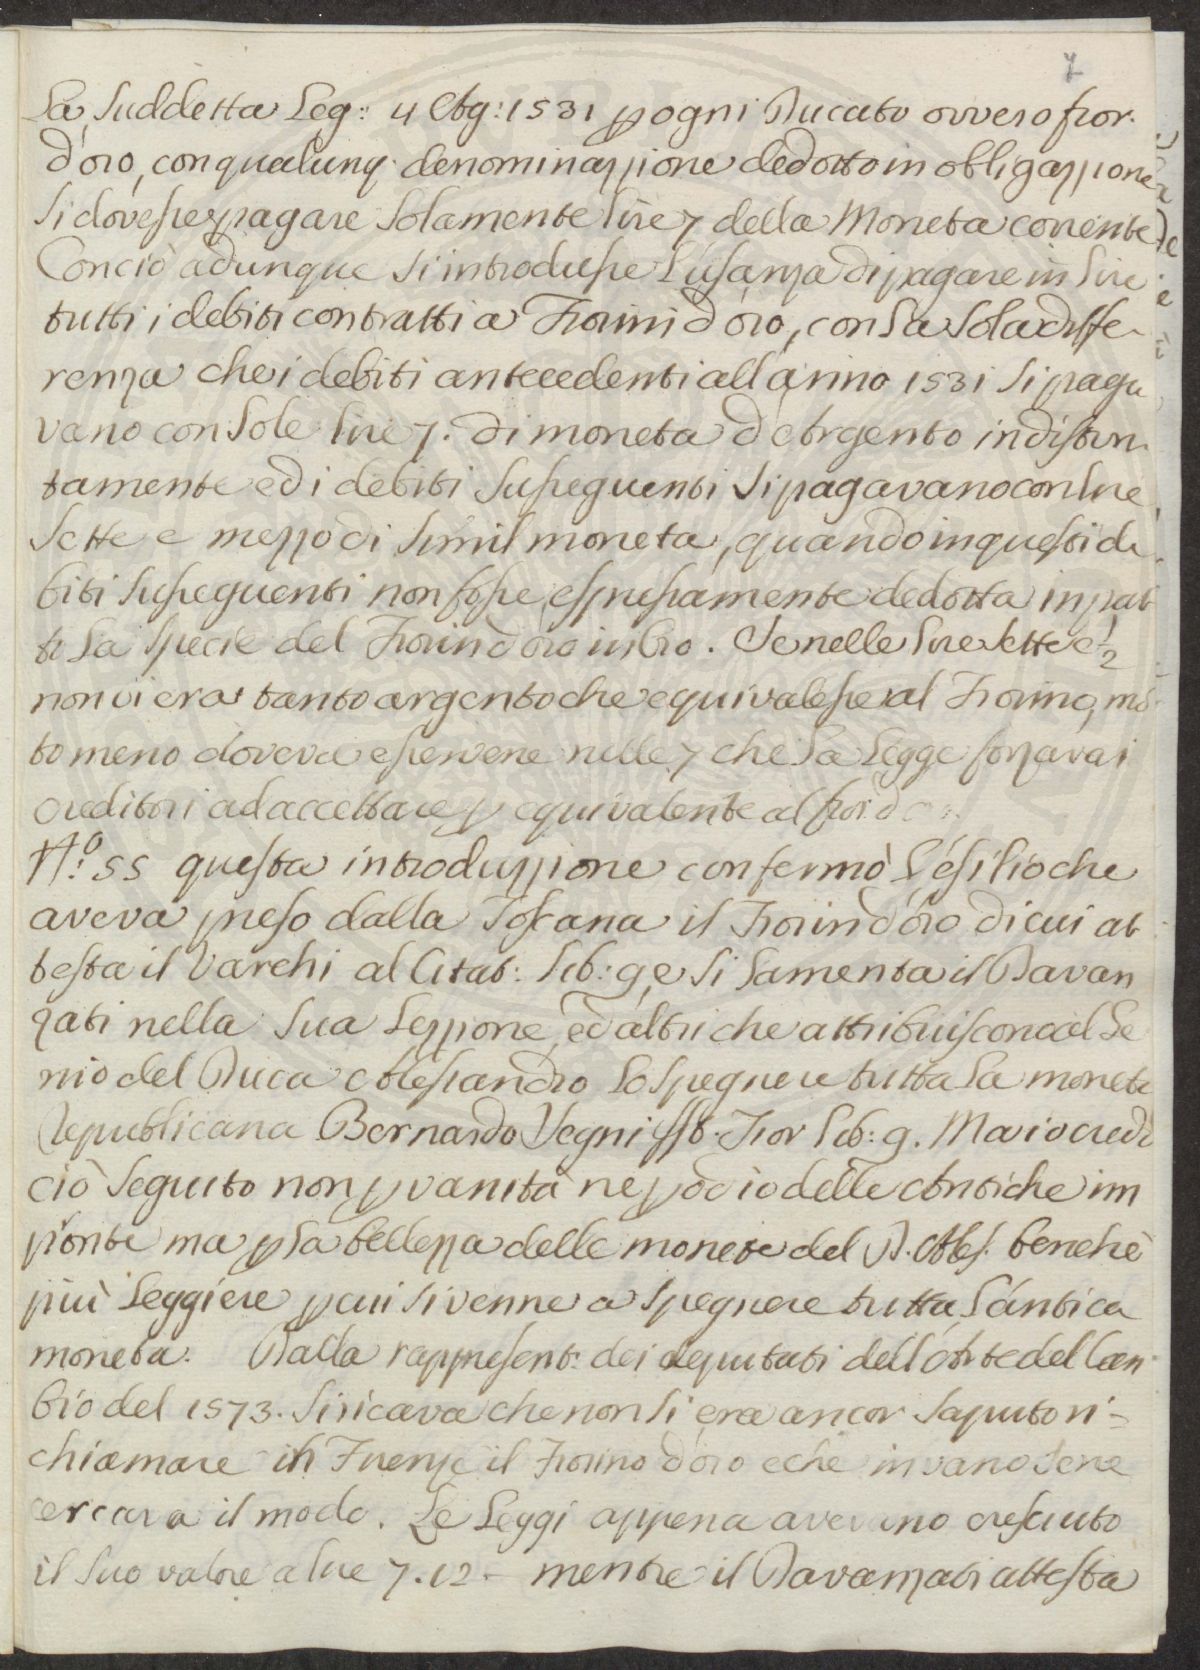 7
La Suddetta Leg: 4 Ag: 1531 p ogni Ducato ovvero fior.
d'oro, con qualunq. denominazzione dedotto in obligazzione
si dovesse pagare solamente lire 7 della Moneta corrente
Con ciò adunque s'introdusse l'usanza di pagare in lire
tutti i debiti contratti a Fiorini d'oro, con la sola diffe-
renza che i debiti antecedenti all'anno 1531 si paga
vano con sole lire 7. di moneta d'Argento indistin
tamente ed i debiti susseguenti si pagavano con lire
sette e mezzo di simil moneta, quando in questi de
biti susseguenti non fosse espressamente dedotta in pat
ti la specie del Fiorin d'oro in oro. Se nelle lire sette e ½
non vi era tanto argento che equivalesse al Fiorino, mol
to meno doveva esservene nelle 7 che la Legge forzava i
creditori ad accettare p equivalente al fior. d'o
N.º 55 questa introduzzione confermò l'esilio che
aveva preso dalla Toscana il Fiorin d'oro di cui at
testa il Varchi al Citat: lib: 9, e si lamenta il Davan
zati nella sua Lezzione, ed altri che attribuiscono al Ge
nio del Duca Alessandro lo spegnere tutta la moneta
Republicana Bernardo Segni Ist. Fior lib: 9. Ma io credo
ciò seguito non p vanità ne p odio delle Antiche im
pronte ma p la bellezza delle monete del D. Ales. benchè
più leggiere p cui si venne a spegnere tutta l'antica
moneta. Dalla rappresent: dei deputati dell'Arte del Cam
bio del 1573. si ricava che non si era ancor saputo ri=
chiamare in Firenze il Fiorino d'oro e che in vano se ne
cercava il modo. Le Leggi appena avevano cresciuto
il suo valore a lire 7.12 - mentre il Davanzati attesta